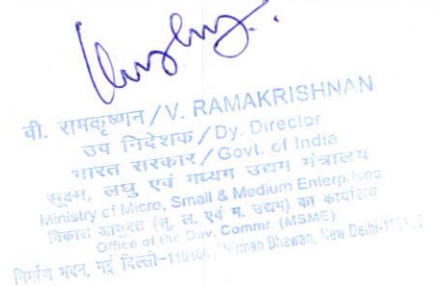 वी. रामकृष्णन / V. RAMAKRISHNAN
उप निदेशक / Dy. Director
भारत सरकार / Govt. of India
सूक्ष्म, लघु एवं मध्यम उद्यम मंत्रालय
Ministry of Micro, Small & Medium Enterprises
विकास आयुक्त (सू. ल. एवं म. उद्यम) का कार्यालय
Office of the Dev. Commr. (MSME)
निर्माण भवन, नई दिल्ली- / Nirman Bhawan, New Delhi-